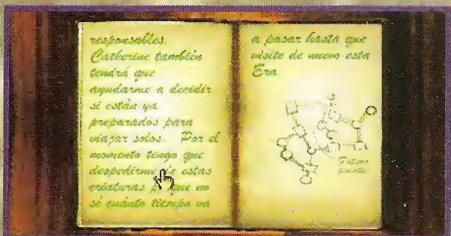 responsables.
Catherine también
tendrá que
ayudarme a decidir
si están ya
preparados para
viajar solos. Por el
momento tengo que
despedirme de estas
criaturas que no
sé cuánto tiempo va
a pasar hasta que
visite de nuevo esta
Era
Futuro
puente